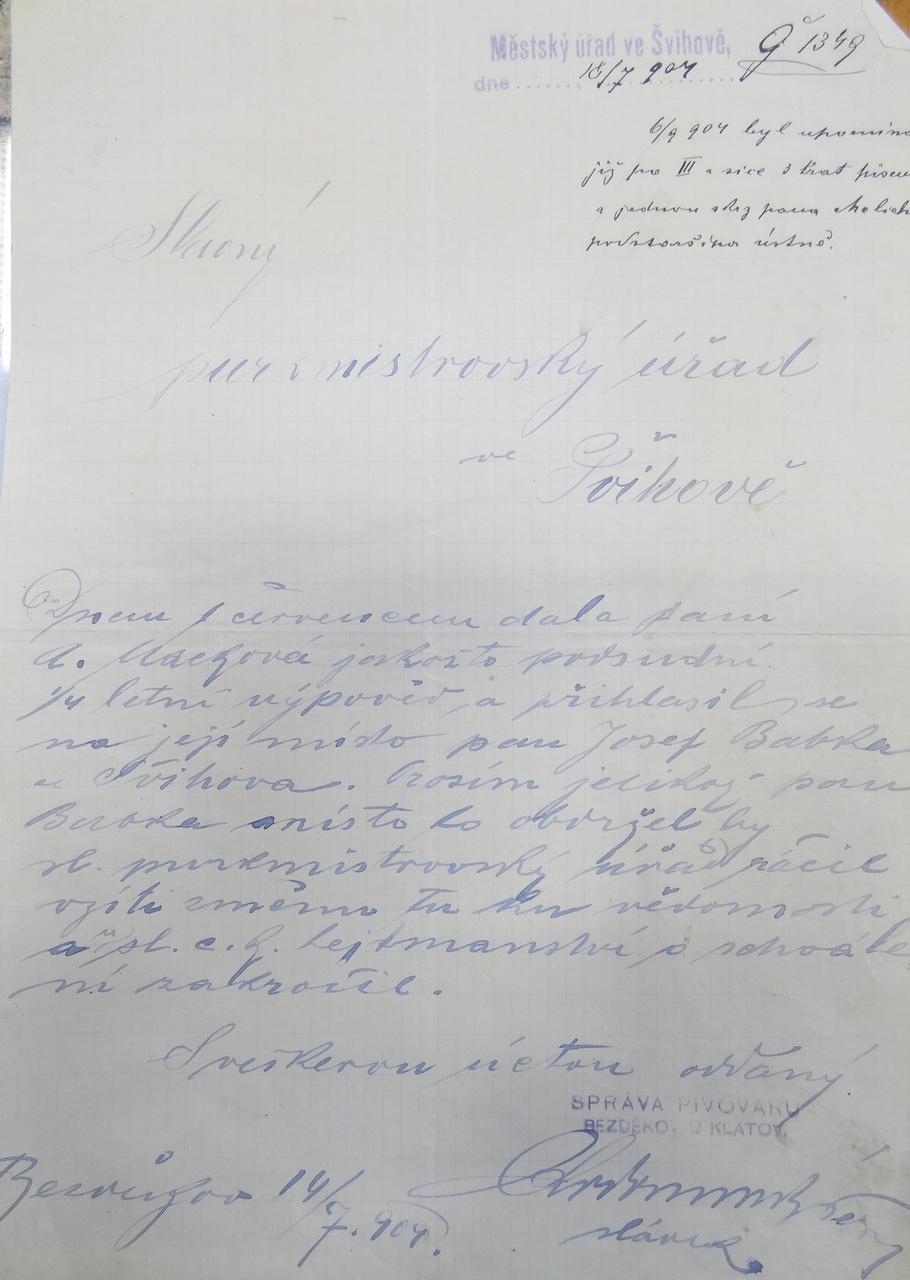 Městský úřad ve Švihově,
dne 18/7 904 č 1349
6/9 904 byl upomínán
již po III a sice 3 krat písem
a jednou skrz pana
ústně.
Slavný
purkmistrovský úřad
ve Švihově
Dnem 1 červencem dala paní
A. Macháová jakožto podsudní
1/4 letní výpověď, a přihlasil se
na její místo pan Josef Babka
ze Švihova. Prosím jelikož pan
Babka místo to obdržel by
sl. purkmistrovský úřad ráčil
vzíti změnu tu ku vědomosti
a u sl. c. k. hejtmanství o schvále
ní zakročil.
S veškerou úctou oddaný
SPRÁVA PIVOVARU
BEZDĚKOV, U KLATOV,
14/7. 904.
sládek